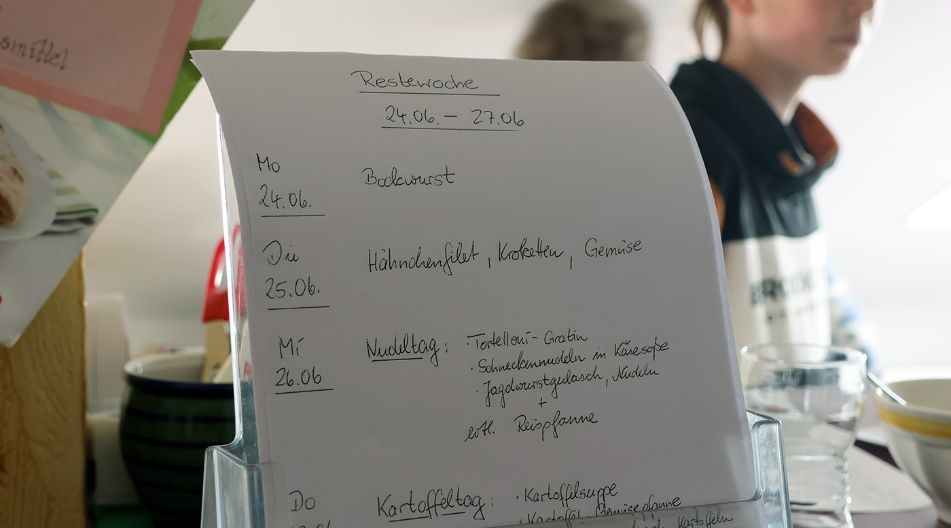 Restewoche
24.06. - 27.06
Mo
24.06.
Bockwurst
Die
25.06.
Hähnchenfilet, Kroketten, Gemüse
Mi
26.06
Nudeltag:
· Tortelloni-Gratin
· Schneckennudeln in Käsesoße
· Jagdwurstgulasch, Nudeln
+
evtl. Reispfanne
Do
Kartoffeltag:
· Kartoffelsuppe
· Kartoffel
Kartoffeln